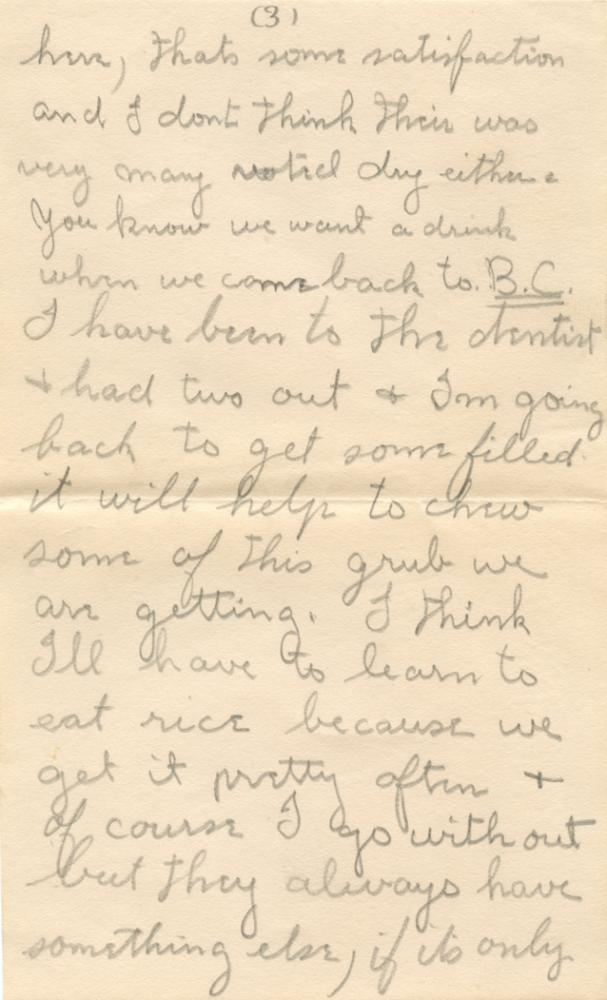 (3)
here, thats some satisfaction
and I dont think their was
very many voted dry either.
You know we want a drink
when we come back to. B.C.
I have been to the dentist
+ had two out + Im going
back to get some filled.
it will help to chew
some of this grub we
are getting. I think
Ill have to learn to
eat rice because we
get it pretty often +
of course I go without
but they always have
something else, if its only